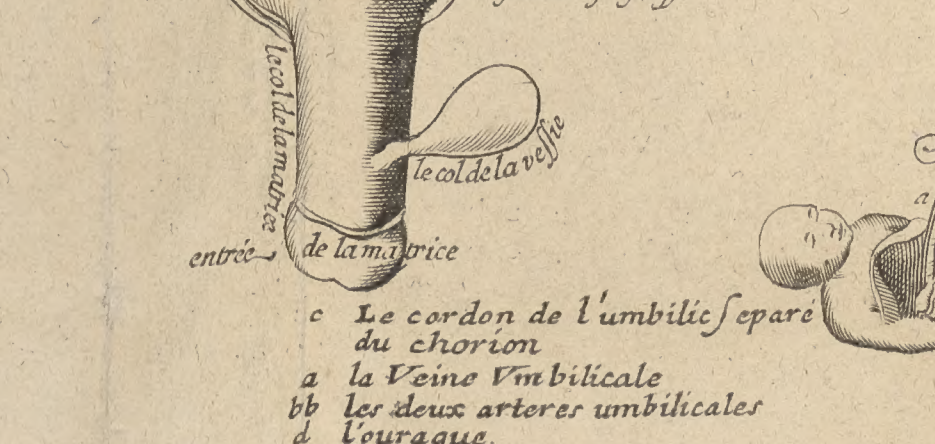 le col de la matrice
le col de la veſſie
a
entrée de la matrice
c Le cordon de l'umbilic ſeparé
du chorion
a la Veine Vmbilicale
bb les deux arteres umbilicales
d l'ouraque.